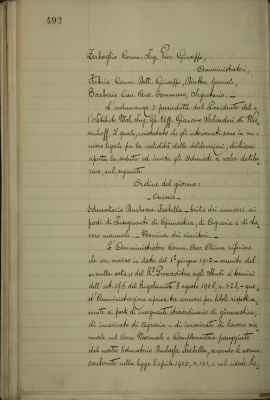 492
Zerboglio Comm. Ing. Pier Giuseppe,
Amministratori,
Fabris Comm. Dott. Giuseppe, Direttore Generale,
Barberis Cav. Avv. Tommaso, Segretario. —
L'adunanza è presieduta dal Presidente del-
l'Istituto Nob. Ing. Gr. Uff. Giacomo Salvadori di Wie-
senhoff, il quale, constatato che gli intervenuti sono in nu-
mero legale per la validità delle deliberazioni, dichiara
aperta la seduta ed invita gli Adunati a voler delibe-
rare sul seguente
Ordine del giorno:
— Omissis —
Educatorio Duchessa Isabella — Esito dei concorsi ai
posti di Insegnanti di Ginnastica, di Agraria e di La-
voro manuale. — Nomina dei vincitori. —
L'Amministratore Comm. Avv. China riferisce
che con avviso in data del 1° giugno 1912 — munito del
visto del R.° Provveditore agli Studi ai termini
dell'art. del Regolamento 3 agosto 1908, n. 623, — que-
st'Amministrazione apriva tre concorsi per titoli rispettiva-
mente ai posti di insegnante straordinario di ginnastica,
di incaricato di agraria e di incaricato di lavoro ma-
nuale nel Corso Normale e Complementare pareggiato
del nostro Educatorio Duchessa Isabella, secondo le norme
contenute nella legge 8 aprile 1906, n. 141, e nel citato Re-